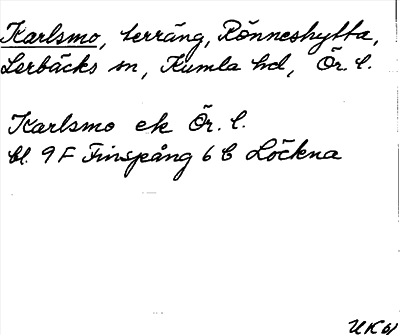 Karlsmo, terräng, Rönneshytta,
Lerbäcks sn, Kumla hd, Ör. l.
Karlsmo ek Ör. l.
bl. 9 F Finspång 6 C Löckna